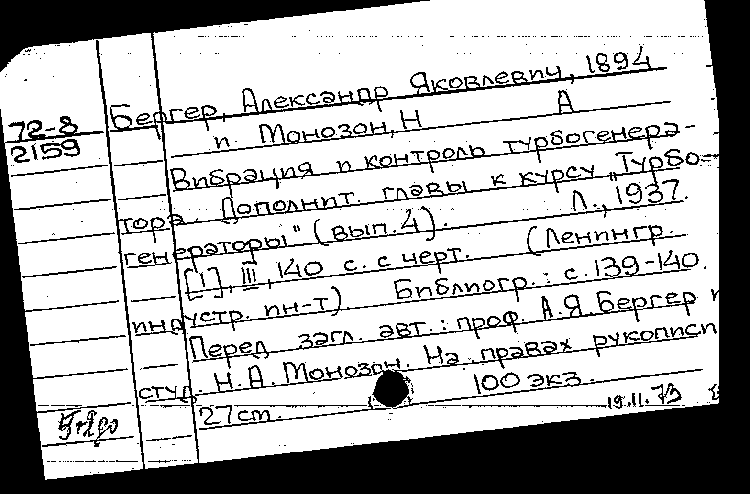 Бергер, Александр Яковлевич, 1894
72-8
2159
и Монозон, Н А
Вибрация и контроль турбогенера-
тора. Дополнит. главы к курсу „Турбо-
генераторы" (вып. 4). Л., 1937.
[1], III, 140 с. с черт. (Ленингр.
индустр. ин-т) Библиогр.: с. 139-140.
Перед загл. авт.: проф. А.Я. Бергер и
студ. Н.А. Монозон. На правах рукописи
100 экз.
27cm.
19.11.73